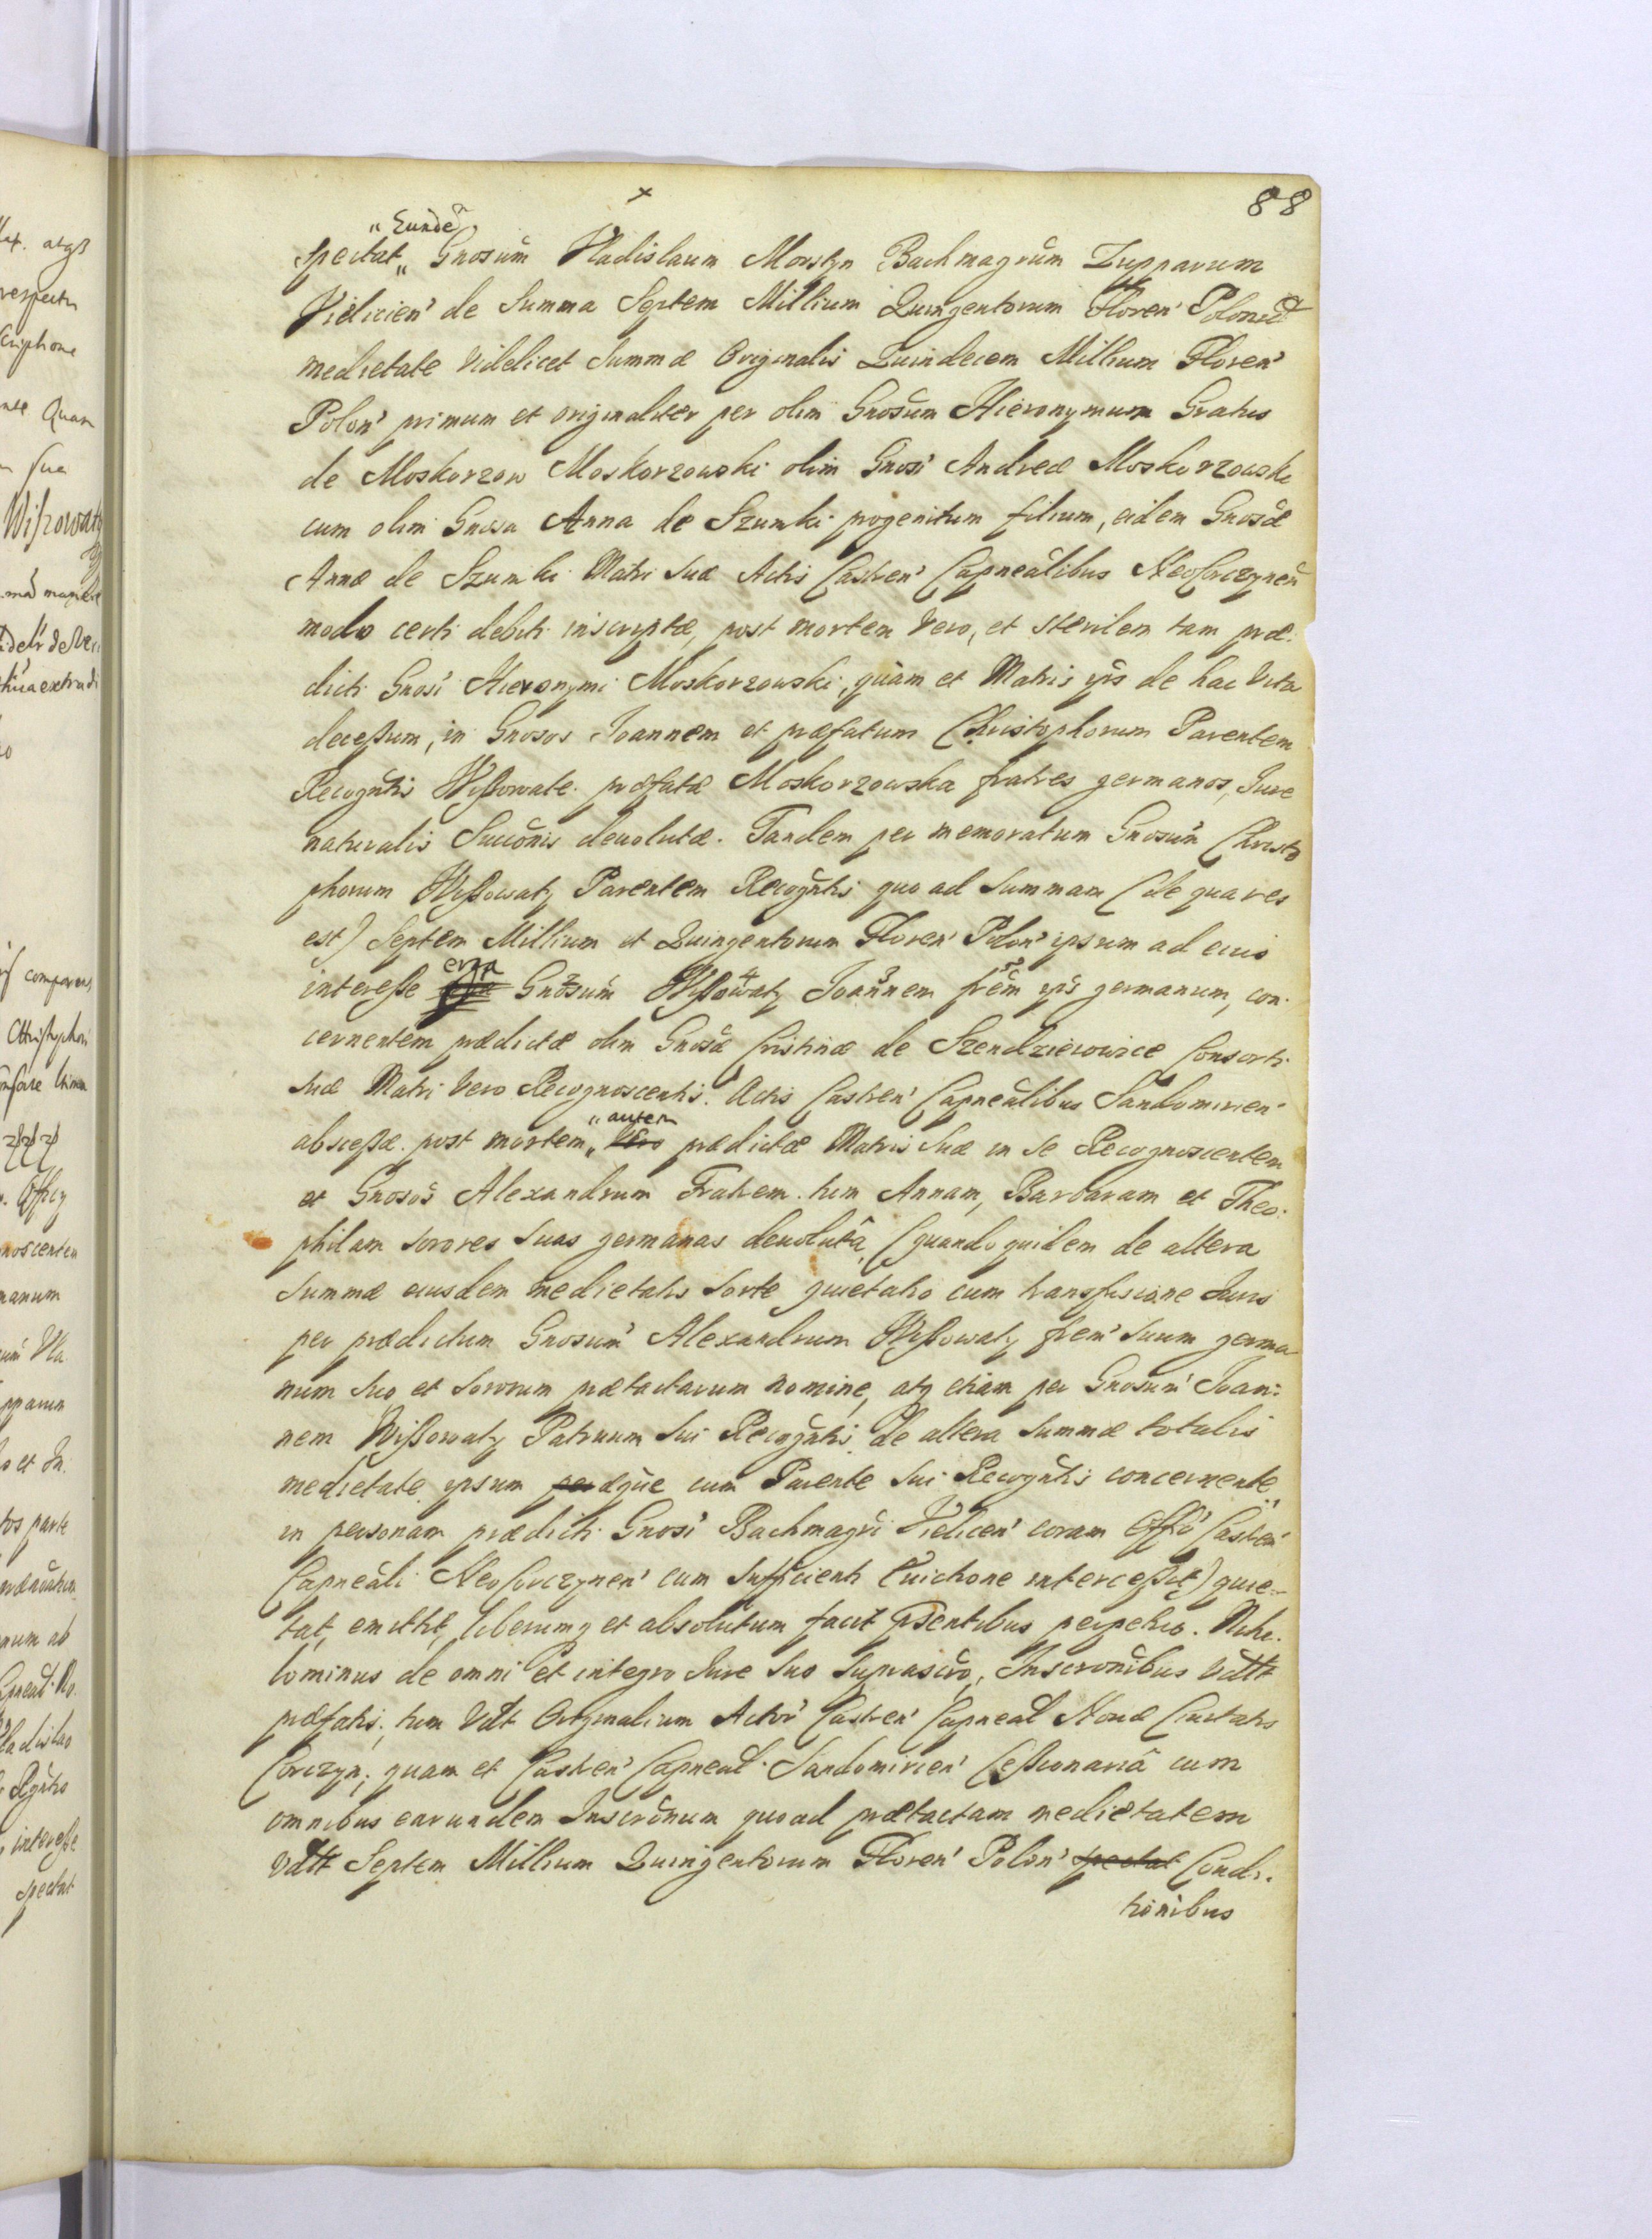 88
„Eundē
spectat„ Gnosum̃ Wladislaum Morstyn Bachmagrũm Zupparum
Vielicien̄ de Summa Septem Millium Quingentorum Floren̄ Polonic̄
medietate Videlicet Summæ Originalis Quindecem Millium Floren̄
Polon̄ primum et originaliter per olim Gnosũm Hieronymum Gratus
de Moskorzow Moskorzowski olim Gnosi Andreæ Moskorzowski
cum olim Gnosa Anna de Szumki progenitum filium, eidem Gnosæ
Annæ de Szumki Matri Suæ Actis Castren̄ Capneãlibus NeoCorczynen̄
modo certi debiti inscriptæ, post mortem Vero, et sterilem tam præ:
dicti Gnosi Hieronymi Moskorzowski, quàm et Matris ip̄s de hac Vita
deceßum, in Gnosos Joannem et præfatum Christophorum Parentem
Recogñtis Wißowate. præfatæ Moskorzowska fratres germanos, Jure
naturalis Succõnis deuolutæ. Tandem per memoratum Gnosum̃ Christo
phorum Wißowaty Parentem Recogñtis quo ad Summam (de qua res
est) Septem Millium et Quingentorum Floren̄ Polon̄ ipsum ad eius
intereße erga Gnosum̃ Wißowaty Joannem frēm ip̄s germanum, con:
cernentem prædictæ olim Gnosæ Cristinæ de Szendzierowice Consorti
Suæ Matri Vero Recognoscentis. Actis Castren̄ Capneãlibus Sandomirien̄
absceßæ. post mortem „autem Vero prædictæ Matris Suæ in Se Recognoscentem
et Gnosos̄ Alexandrum Fratrem. tum Annam, Barbaram et Theo:
philam sorores Suas germanas deuolutâ (quandoquidem de altera
Summæ eiusdem medietatis Sorte quietatio cum transfusione Juris
per prædictum Gnosum̃ Alexandrum Wißowaty frem̄ Suum germa
num Suo et Sororum prætactarum nomine, atq etiam per Gnosum̃ Joan:
nem Wißowaty Patruum Sui Recogñtis de altera Summæ totalis
medietate ipsum per æque cum Parente Sui Recogñtis concernente
in personam prædicti Gnosi Bachmagrĩ Vielicen̄ coram Offõ Castren̄
Capneãli NeoCorczynen̄ cum Sufficienti Euictione interceßit) quie=
tat, emittit, liberumq et absolutum facit p̄sentibus perpetuo. Nihi.
lominus de omni et integro Jure Suo Suprascr̃o, Inscronĩbus Vdtt
præfatis, tum Vdt Originalium Actor̄ Castren̄ Capneal Nouæ Ciuitatis
Corczyn; quam et Castren̄ Capneal. Sandomirien̄ Ceßionariâ cum
omnibus earundem Inscrõnum quoad prætactam medietatem
Vdtt Septem Millium Quingentorum Floren̄ Polon̄ spectat Condi:
tionĩbus